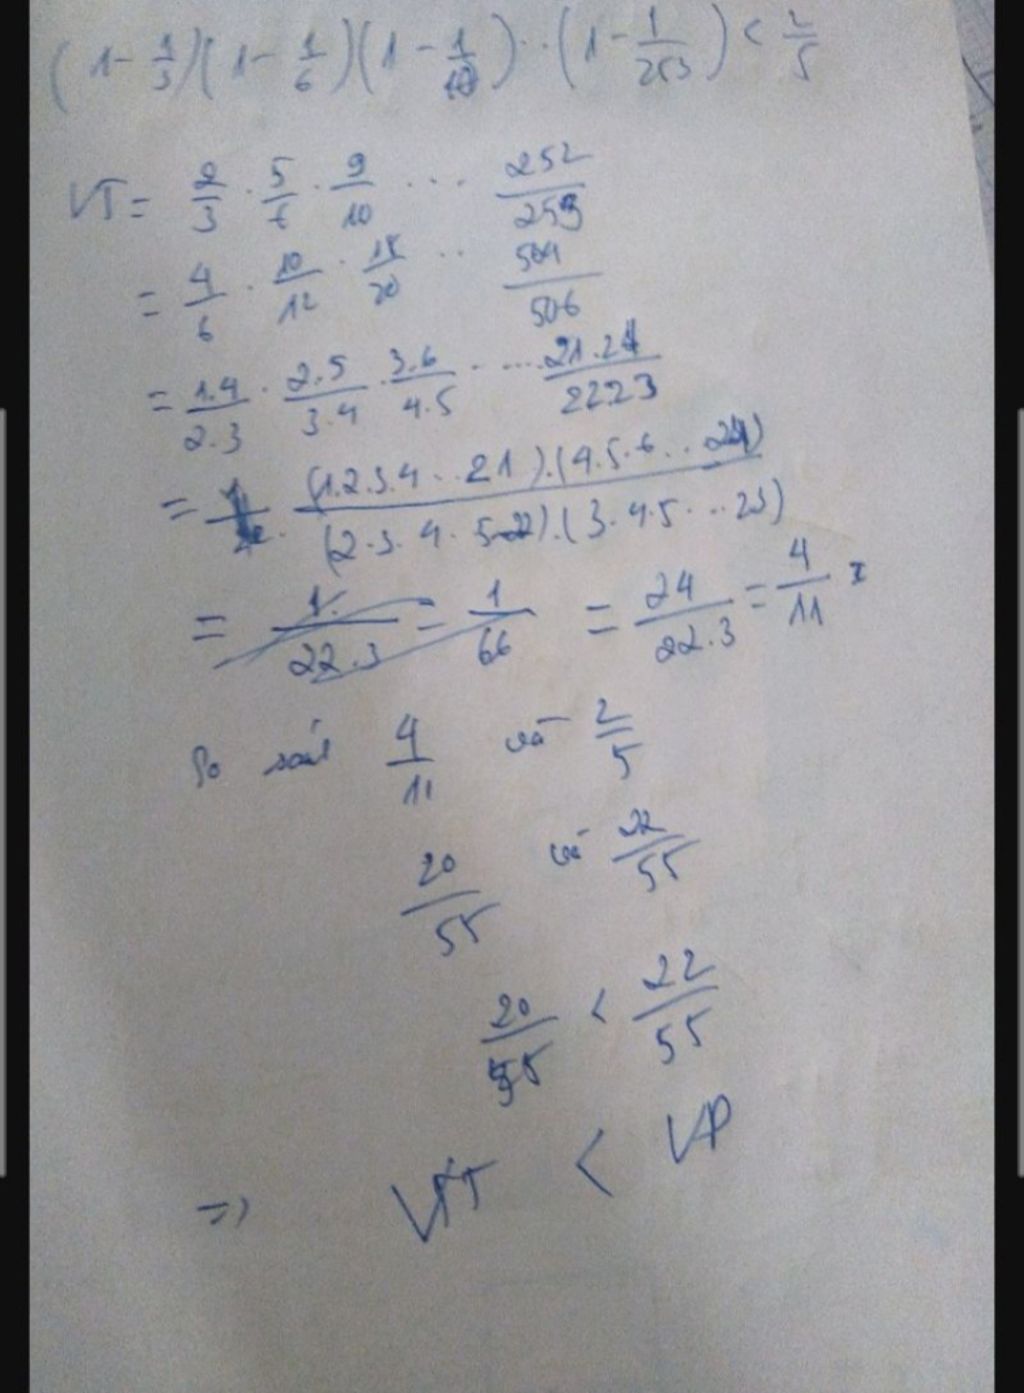 (1 - 1/3)(1 - 1/6)(1 - 1/10)...(1 - 1/253) < 2/5
VT = 2/3 . 5/6 . 9/10 ... 252/253
= 4/6 . 10/12 . 18/20 .. 504/506
= 1.4/2.3 . 2.5/3.4 . 3.6/4.5 . .... 21.24/2223
= (1.2.3.4...21).(4.5.6...24)/(2.3.4.5...22).(3.4.5...23)
= 1/22.3 = 1/66 = 24/22.3 = 4/11
So sánh 4/11 và 2/5
20/55 và 22/55
20/55 < 22/55
=> VT < VP